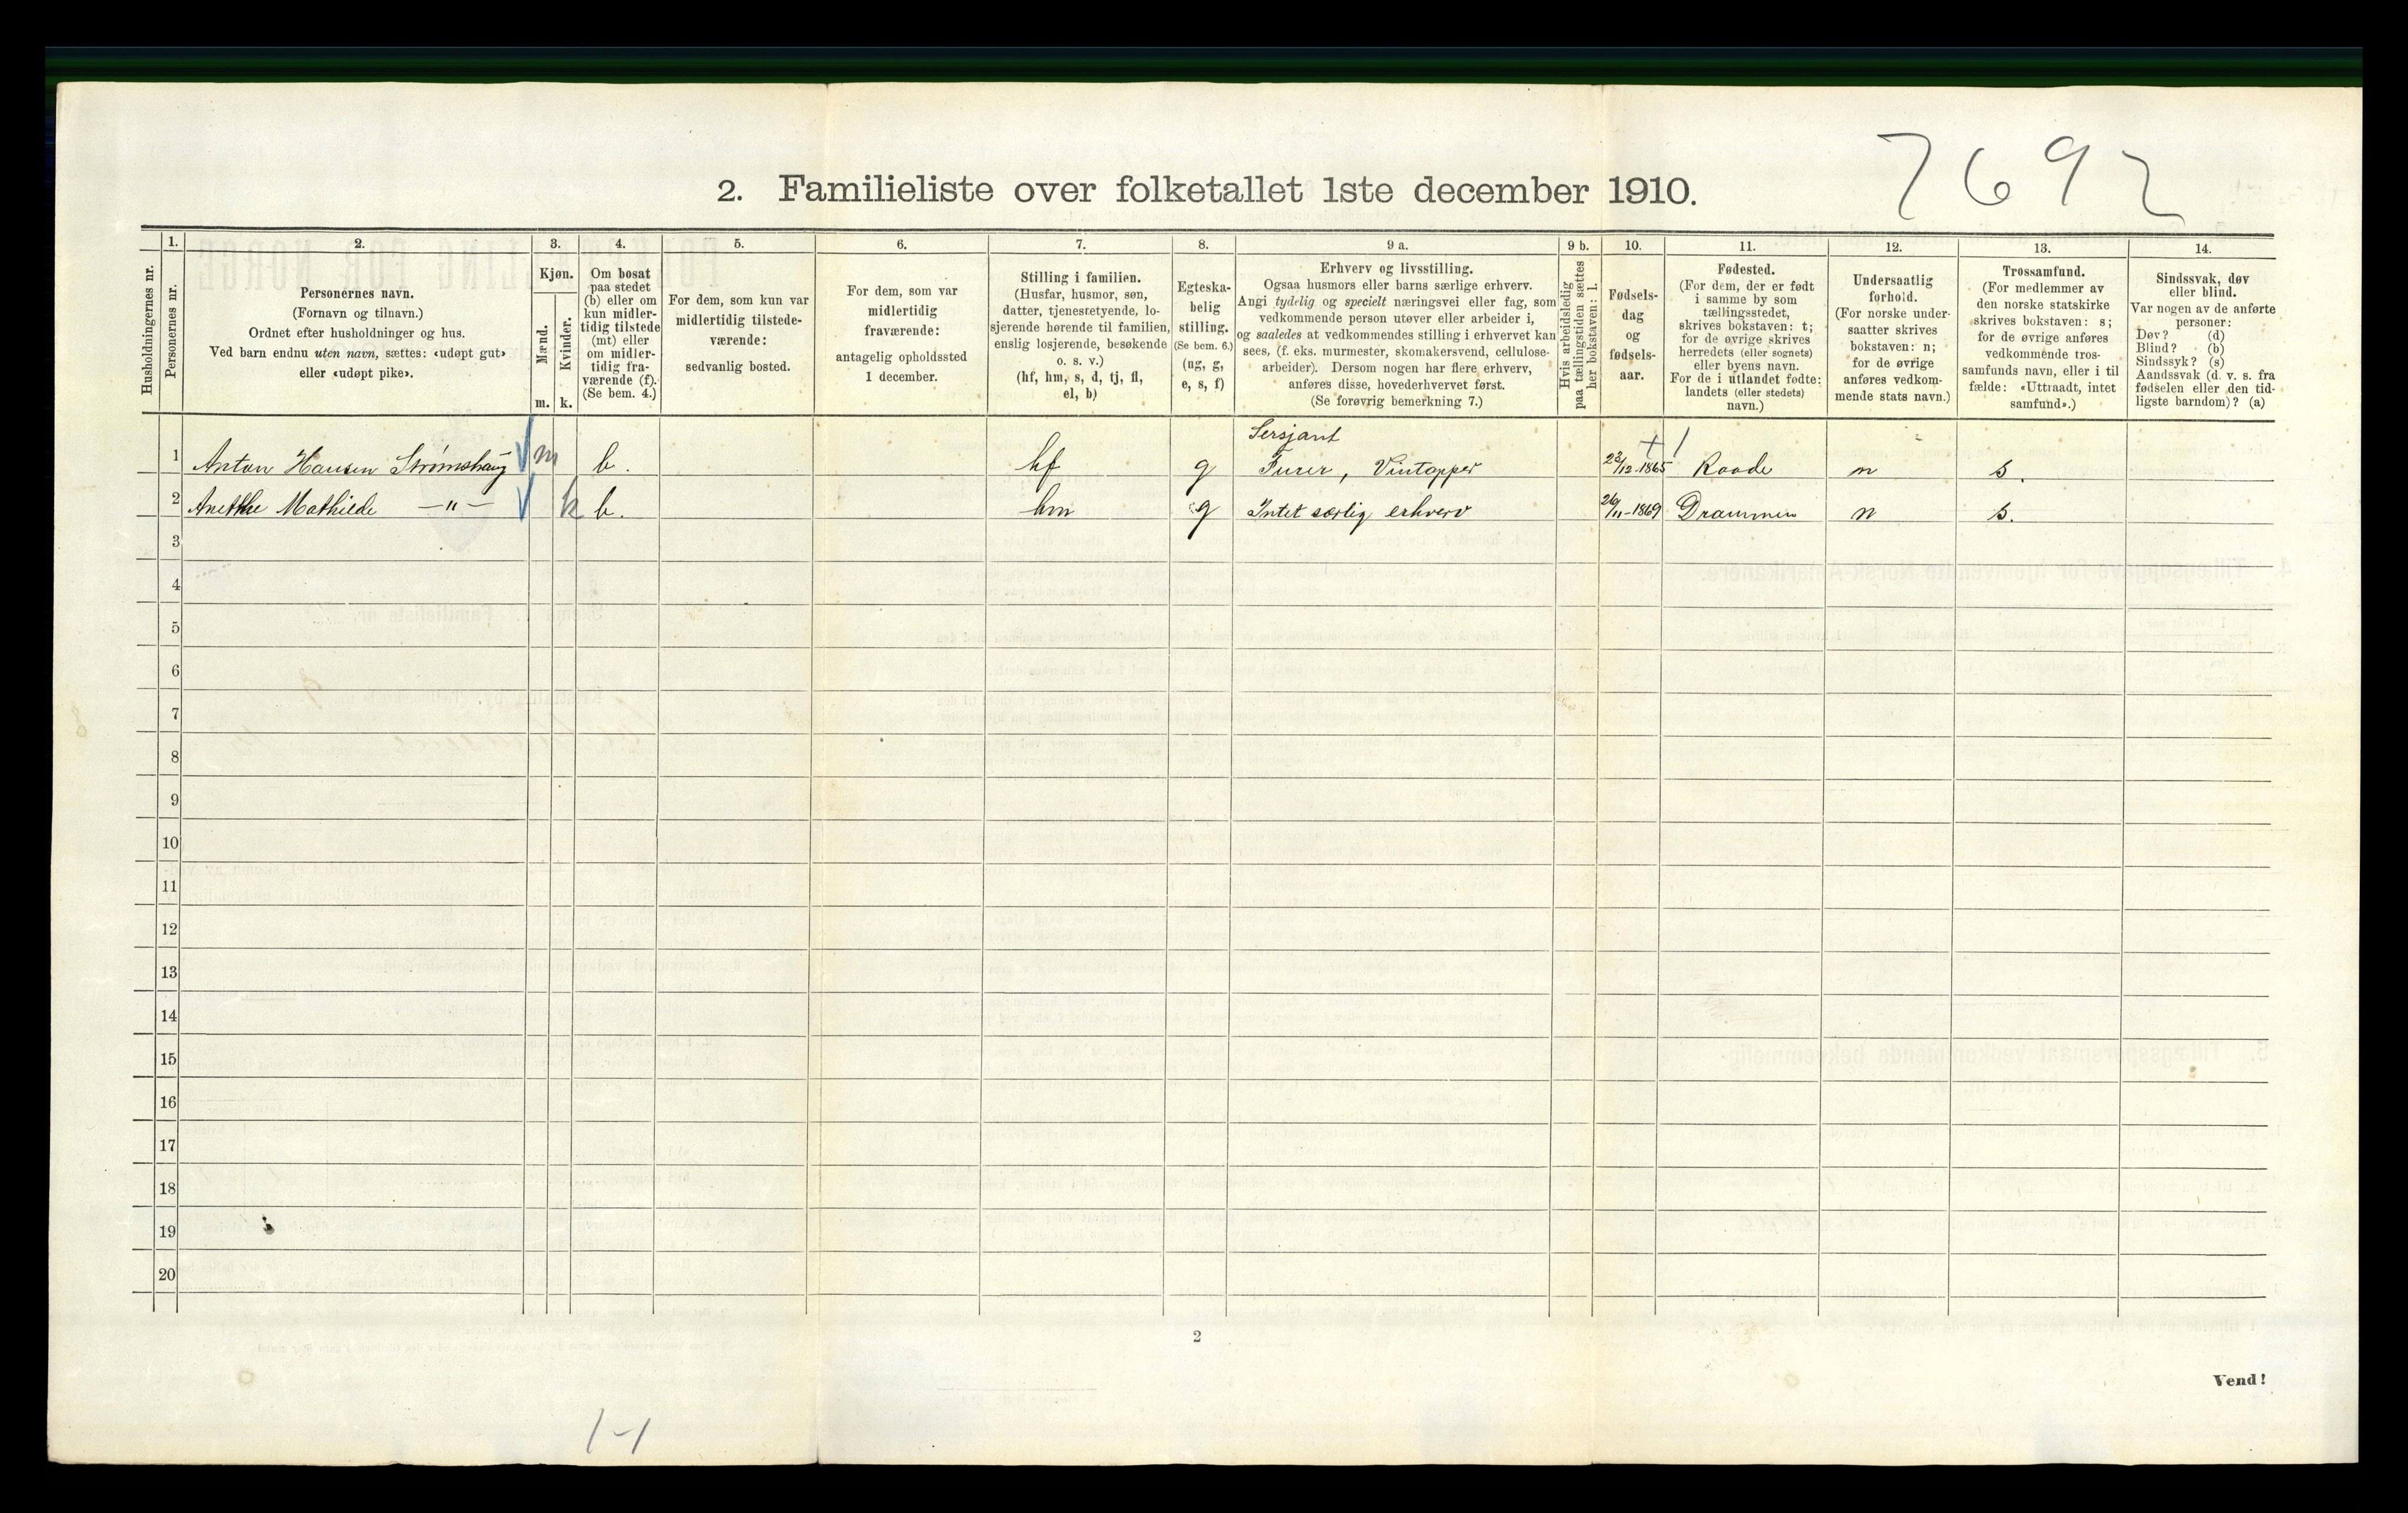 7692
2. Familieliste over folketallet 1ste december 1910.
Husholdningernes nr.
1.
Personernes nr.
2.
Personernes navn.
(Fornavn og tilnavn.)
Ordnet efter husholdninger og hus.
Ved barn endnu uten navn, sættes: «udøpt gut»
eller «udøpt pike».
3.
Kjøn.
Mænd.
Kvinder.
m. k.
4.
Om bosat
paa stedet
(b) eller om
kun midler-
tidig tilstede
(mt) eller
om midler-
tidig fra-
værende (f).
(Se bem. 4.)
5.
For dem, som kun var
midlertidig tilstede-
værende:
sedvanlig bosted.
6.
For dem, som var
midlertidig
fraværende:
antagelig opholdssted
1 december.
7.
Stilling i familien.
(Husfar, husmor, søn,
datter, tjenestetyende, lo-
sjerende hørende til familien,
enslig losjerende, besøkende
o. s. v.)
(hf, hm, s, d, tj, fl,
el, b)
8.
Egteska-
belig
stilling.
(Se bem. 6.)
(ng, g,
e, s, f)
9 a.
Erhverv og livsstilling.
Ogsaa husmors eller barns særlige erhverv.
Angi tydelig og specielt næringsvei eller fag, som
vedkommende person utøver eller arbeider i,
og saaledes at vedkommendes stilling i erhvervet kan
sees, (f. eks. murmester, skomakersvend, cellulose-
arbeider). Dersom nogen har flere erhverv,
anføres disse, hovederhvervet først.
(Se forøvrig bemerkning 7.)
9 b.
Hvis arbeidsledig
paa tællingstiden sættes
her bokstaven: l.
10.
Fødsels-
dag
og
fødsels-
aar.
11.
Fødested.
(For dem, der er født
i samme by som
tællingsstedet,
skrives bokstaven: t;
for de øvrige skrives
herredets (eller sognets)
eller byens navn.
For de i utlandet fødte:
landets (eller stedets)
navn.)
12.
Undersaatlig
forhold.
(For norske under-
saatter skrives
bokstaven: n;
for de øvrige
anføres vedkom-
mende stats navn.)
13.
Trossamfund.
(For medlemmer av
den norske statskirke
skrives bokstaven: s;
for de øvrige anføres
vedkommende tros-
samfunds navn, eller i til
fælde: «Uttraadt, intet
samfund».)
14.
Sindssvak, døv
eller blind.
Var nogen av de anførte
personer:
Døv? (d)
Blind? (b)
Sindssyk? (s)
Aandssvak (d. v. s. fra
fødselen eller den tid-
ligste barndom)? (a)
Sersjant
1 Anton Hansen Strømshaug m b. hf g Furer, Vintapper 23/12-1865 Raade n s.
2 Anethe Mathilde —"— k b. hm g Intet særlig erhverv 26/11-1869 Drammen n s.
3
4
5
6
7
8
9
10
11
12
13
14
15
16
17
18
19
20
2
Vend!
1-1